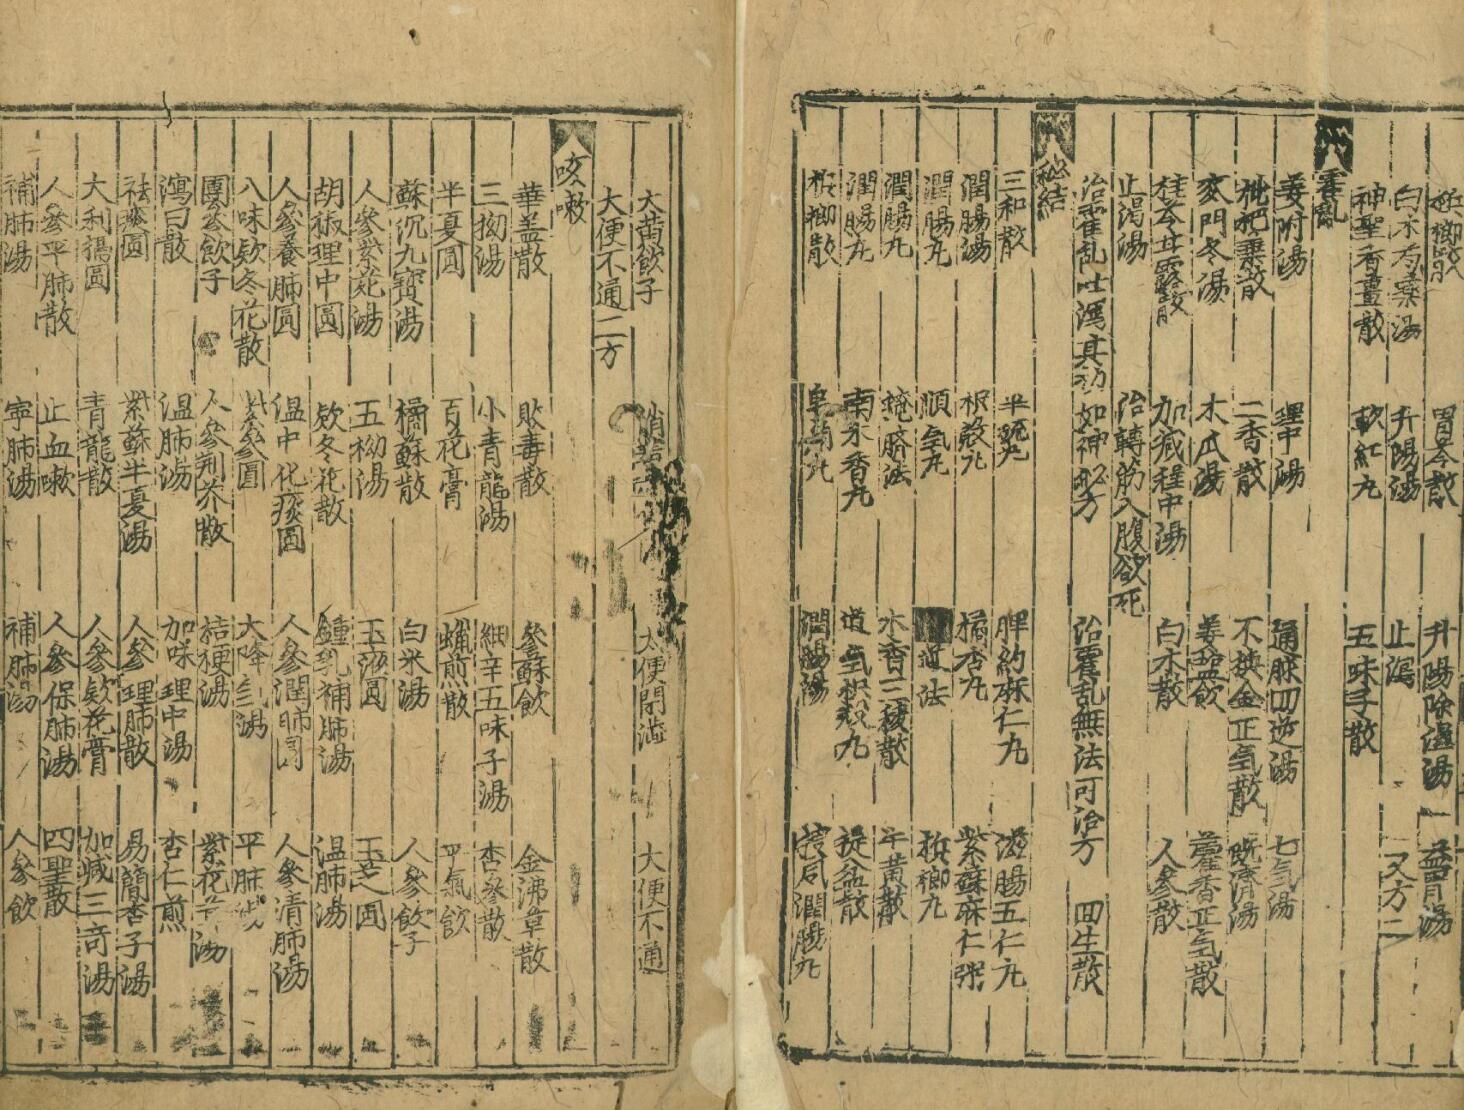 檳榔散　胃苓散　升陽除濕湯　益胃湯
白朮芍藥湯　升陽湯　止瀉　又方二
神聖香薑散　軟紅丸　五味子散
霍亂
姜附湯　理中湯　通脉四逆湯　七氣湯
枇杷葉散　二香散　不換金正氣散　既濟湯
麥門冬湯　木瓜湯　姜塩飲　藿香正氣散
桂苓甘露散　加减理中湯　白朮散　人參散
止渴湯　治轉筋入腹欲死
治霍乱吐瀉其功如神秘方　治霍乱無法可治方　回生散
秘結
三和散　半硫丸　脾約麻仁丸　滋腸五仁丸
潤腸湯　枳殻丸　橘杏丸　紫蘇麻仁粥
潤腸丸　順氣丸　道法　檳榔丸
潤腸丸　掩臍法　木香三稜散　牛黄散
潤腸丸　南木香丸　道氣枳殻丸　提盆散
檳榔散　皂角丸　潤腸湯　搜風潤腸丸
大黄飲子　大便閉澁　大便不通
大便不通二方
咳嗽
華盖散　敗毒散　參蘇飲　金沸草散
三拗湯　小青龍湯　細辛五味子湯　杏參散
半夏圓　百花膏　蠟煎散　平氣飲
蘇沉九寶湯　橘蘇散　白米湯　人參飲子
人參紫菀湯　五拗湯　玉液圓　玉芝圓
胡椒理中圓　欵冬花散　鍾乳補肺湯　温肺湯
人參養肺圓　温中化痰圓　人參潤肺圓　人參清肺湯
八味欵冬花散　紫參圓　大降氣湯　平肺湯
團參飲子　人參荆芥散　桔梗湯　紫花湯
瀉白散　温肺湯　加味理中湯　杏仁煎
祛痰圓　紫蘇半夏湯　人參理肺散　易簡杏子湯
大利膈圓　青龍散　人參欵花膏　加减三奇湯
人參平肺散　止血嗽　人參保肺湯　四聖散
補肺湯　寧肺湯　補肺湯　人參飲